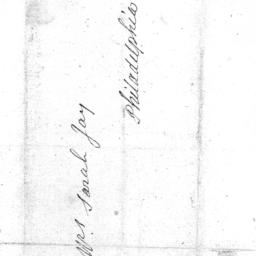 Mrs Sarah Jay
Philadelphia